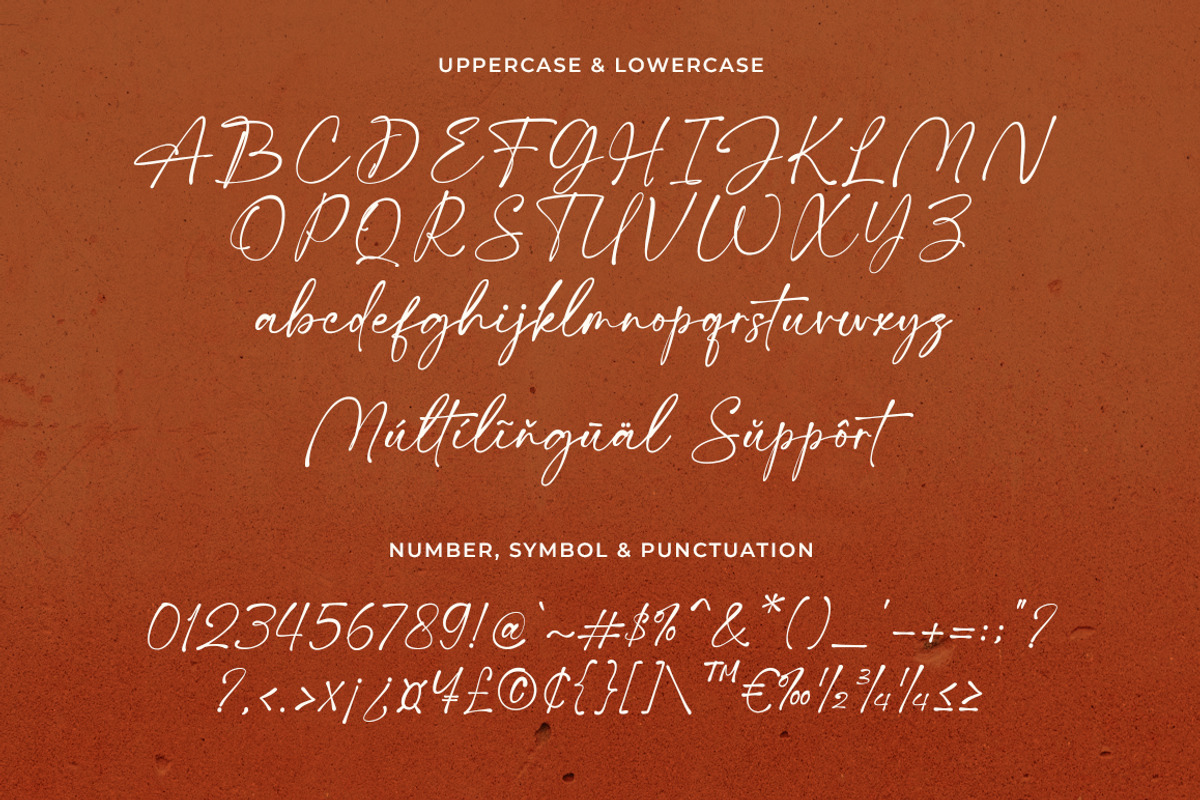 UPPERCASE & LOWERCASE
ABCDEFGHIJKLMN
OPQRSTUVWXYZ
abcdefghijklmnopqrstuvwxyz
Múltílĩňgūäl Sŭppôrt
NUMBER, SYMBOL & PUNCTUATION
0123456789!@`~#$%^&*()_'-+=:;"?
?,<.>x¡¿¤¥£©¢{}[]\™€‰½¾¼≤≥